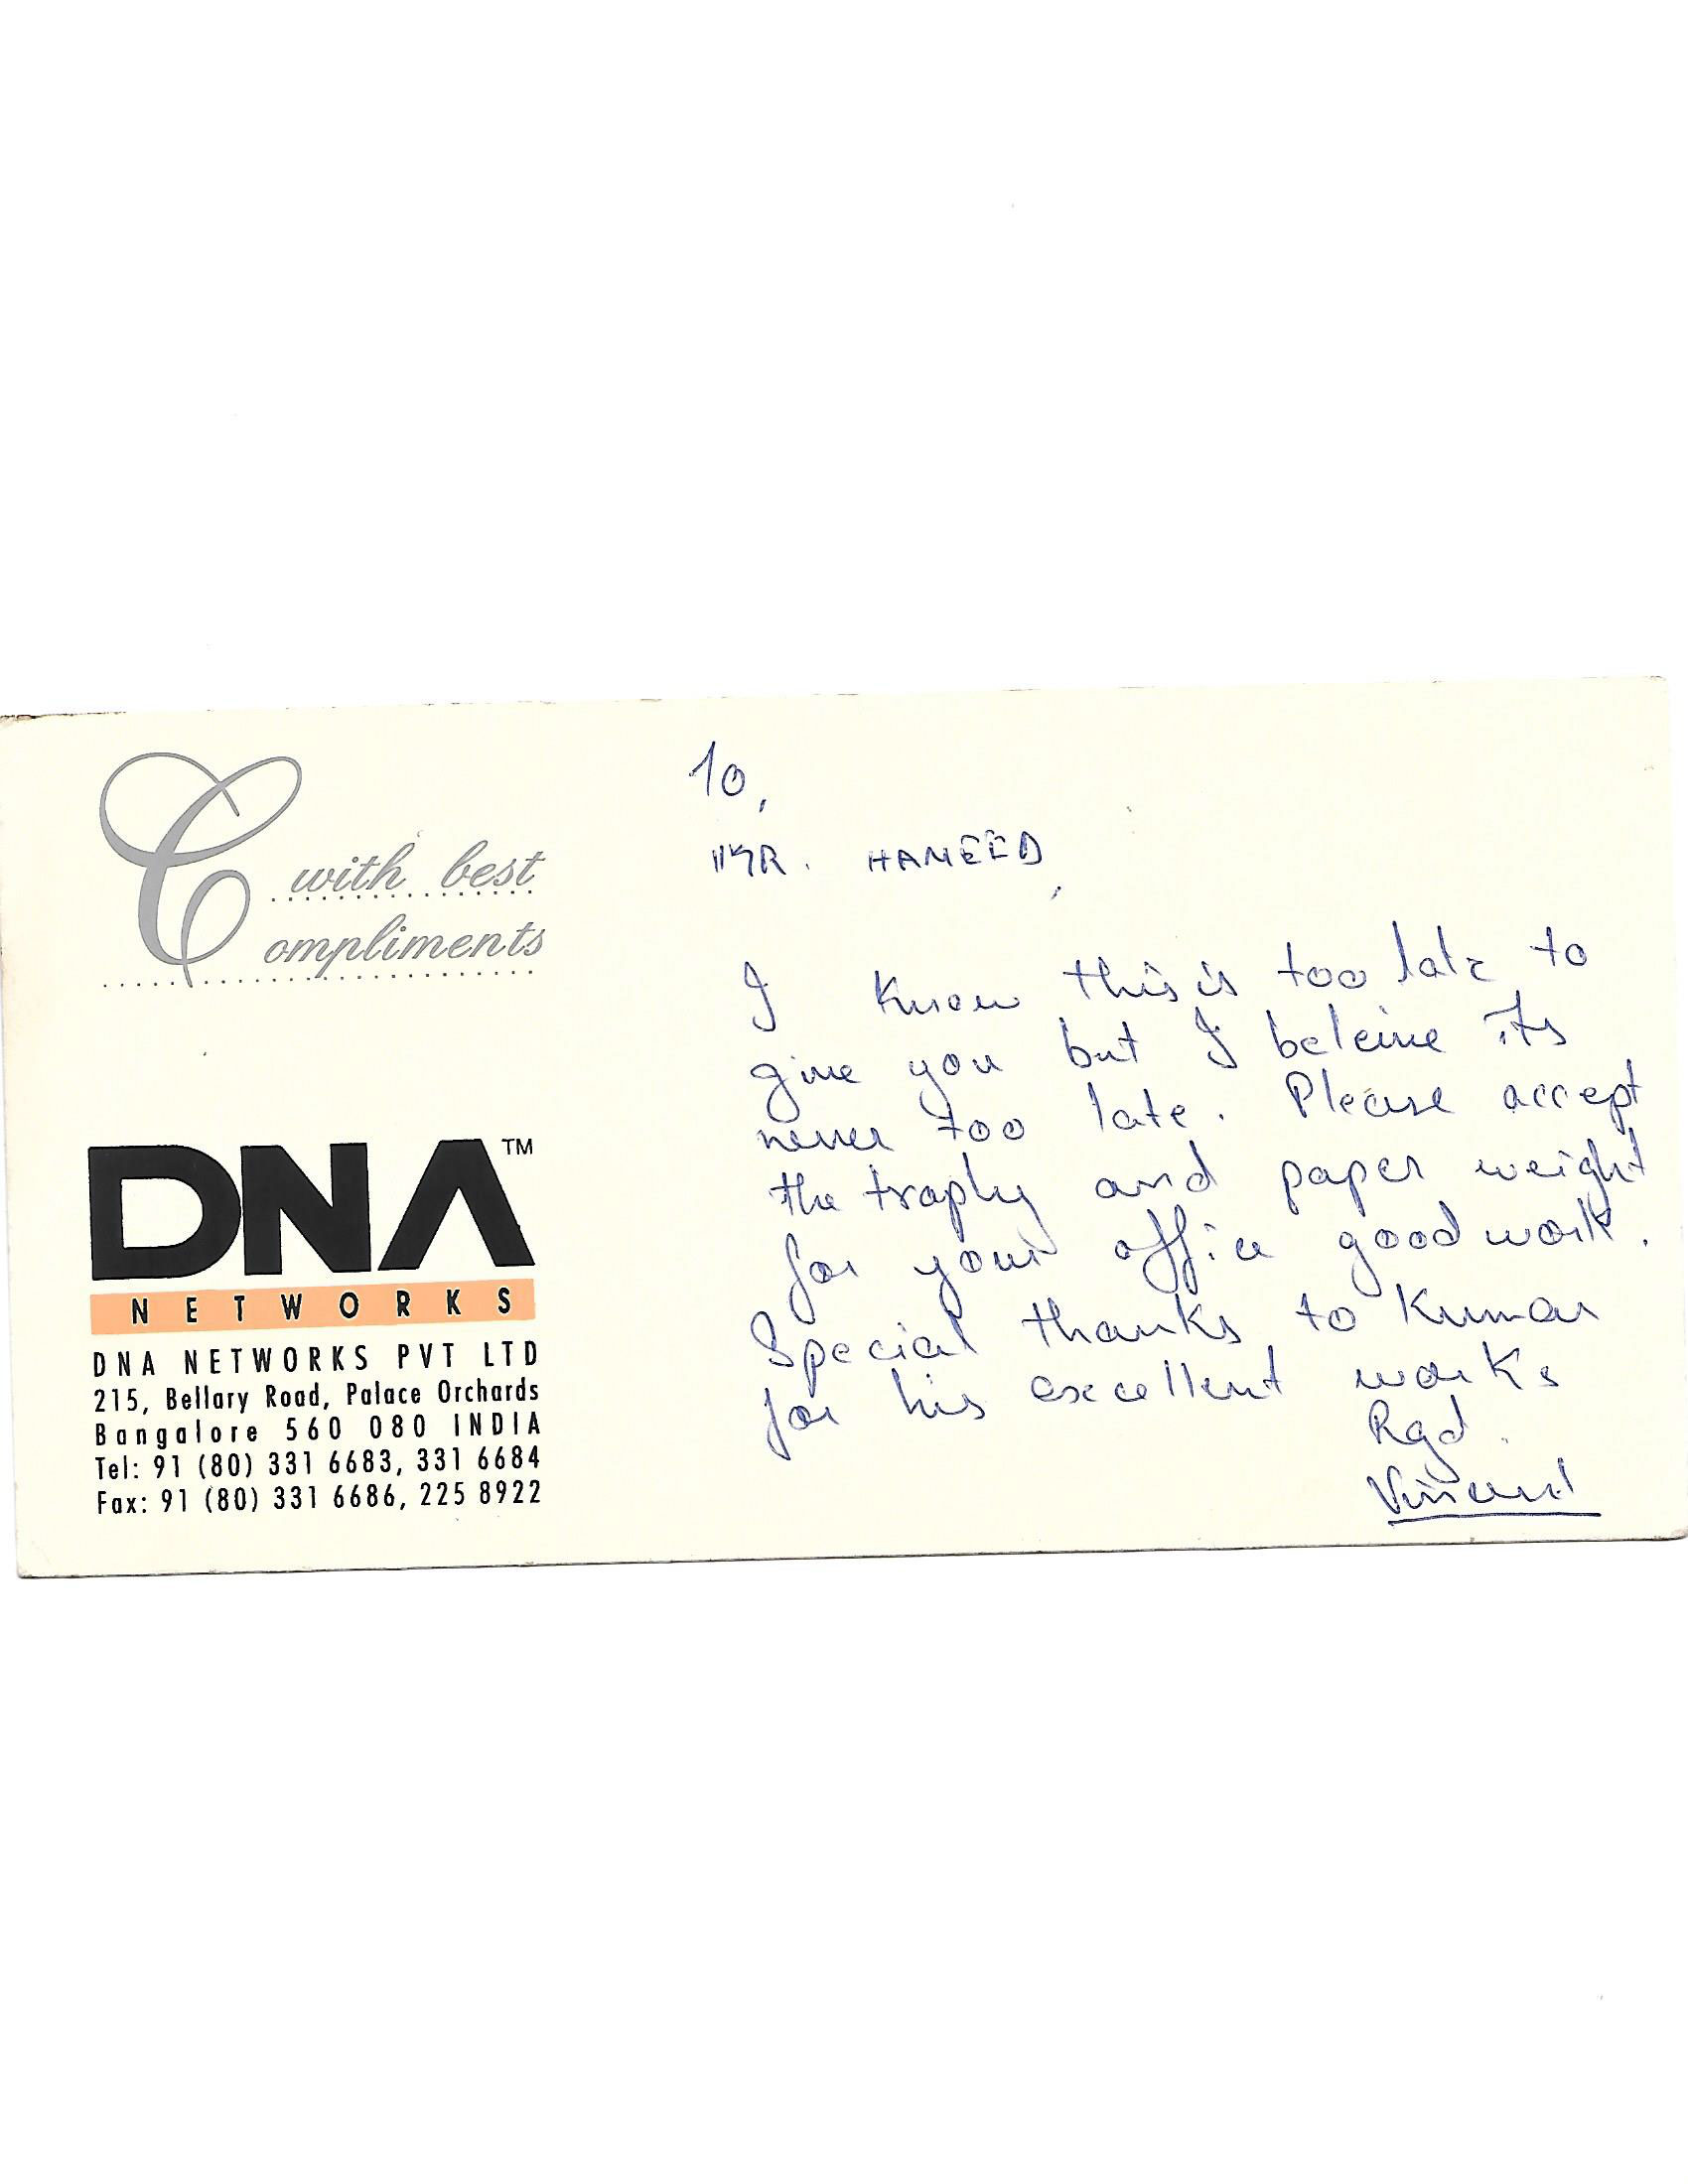 With best
Compliments
DNA™
NETWORKS
DNA NETWORKS PVT LTD
215, Bellary Road, Palace Orchards
Bangalore 560 080 INDIA
Tel: 91 (80) 331 6683, 331 6684
Fax: 91 (80) 331 6686, 225 8922
To,
MR. HAMEED,
I know this is too late to
give you but I beleive its
never too late. Please accept
the trophy and paper weight
for your office good work.
Special thanks to Kumar
for his excellent works
Rgd.